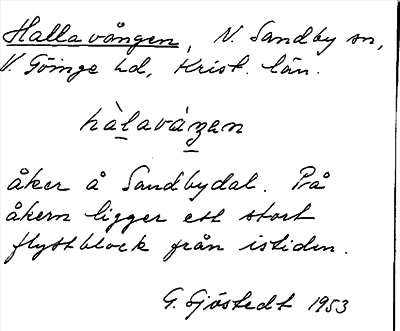 Hallavången, N. Sandby sn,
V. Göinge hd, Krist. län.
hàlavázen
åker å Sandbydal. På
åkern ligger ett stort
flyttblock från istiden.
G. Sjöstedt 1953